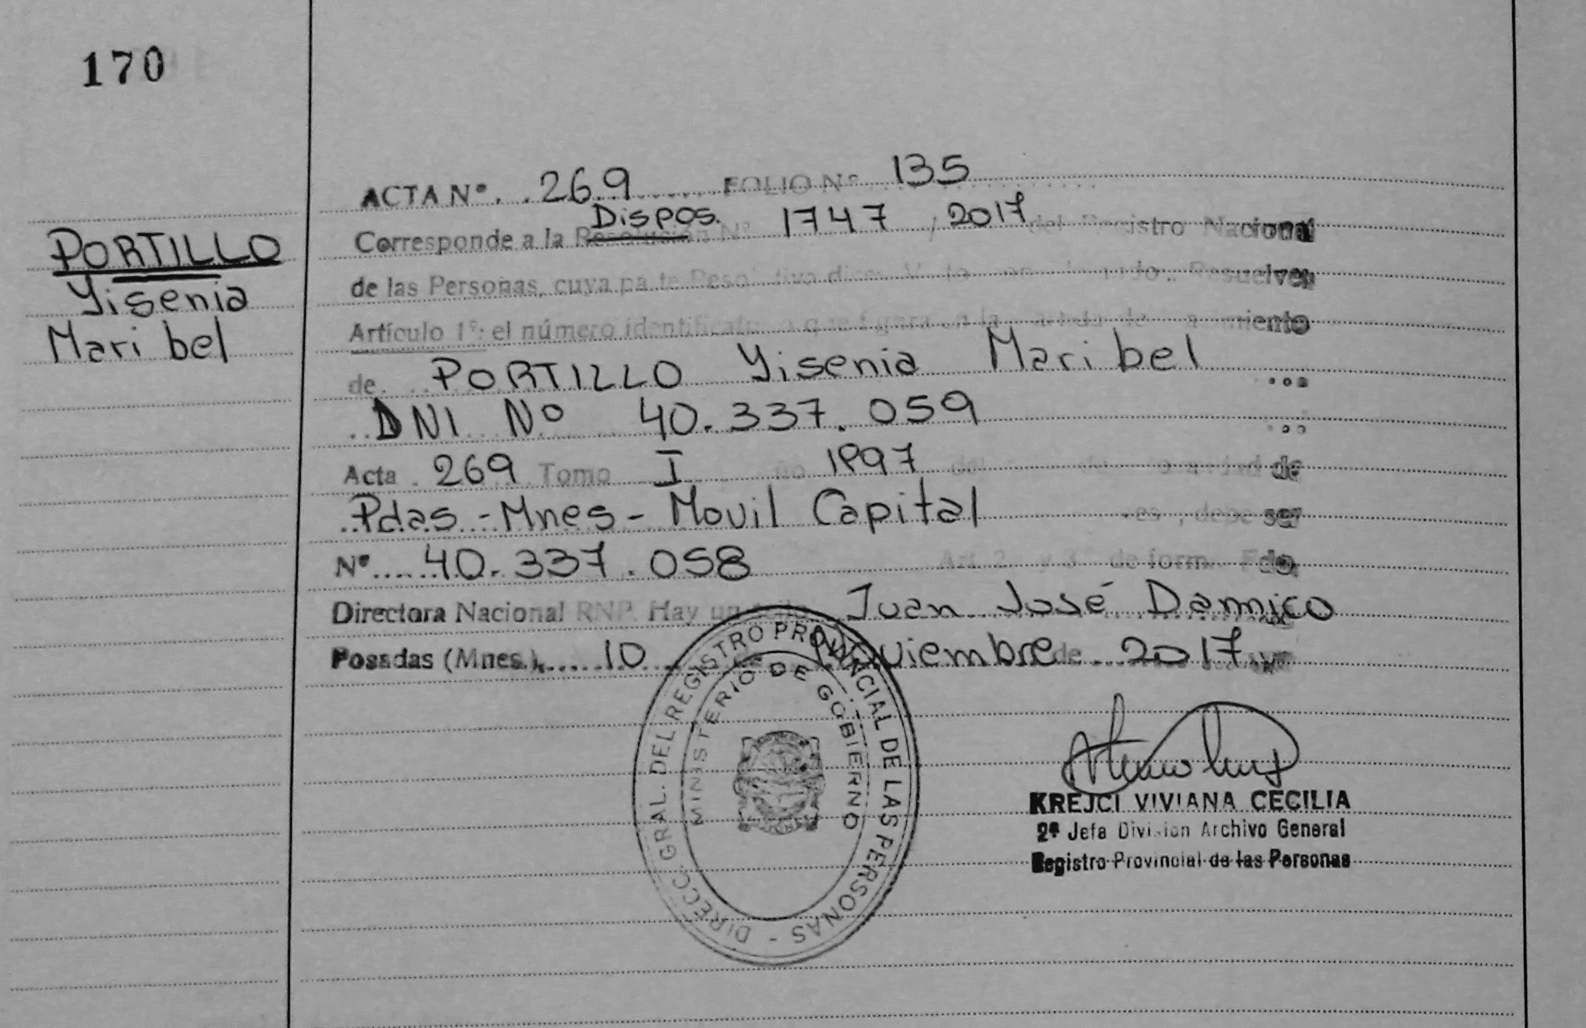 170
PORTILLO
Yisenia
Maribel
ACTA Nº 269 FOLIO Nº 135
Dispos.
Corresponde a la Resolución Nº 1747 / 2017 del Registro Nacional
de las Personas, cuya pa te Resol tiva dice: Resuelve:
Artículo 1º: el número identificat o que figura en la
de PORTILLO Yisenia Maribel
DNI Nº 40.337.059
Acta 269 Tomo I año 1997 del de
Pdas - Mnes - Movil Capital debe ser
Nº 40.337.058 Art. 2 y 3 de form. Fdo.
Directora Nacional RNP. Hay un sello Juan José Damico
Posadas (Mnes.), 10 de Noviembre de 2017
DIRECC. GRAL. DEL REGISTRO PROVINCIAL DE LAS PERSONAS -
MINISTERIO DE GOBIERNO
KREJCI VIVIANA CECILIA
2ª Jefa División Archivo General
Registro Provincial de las Personas